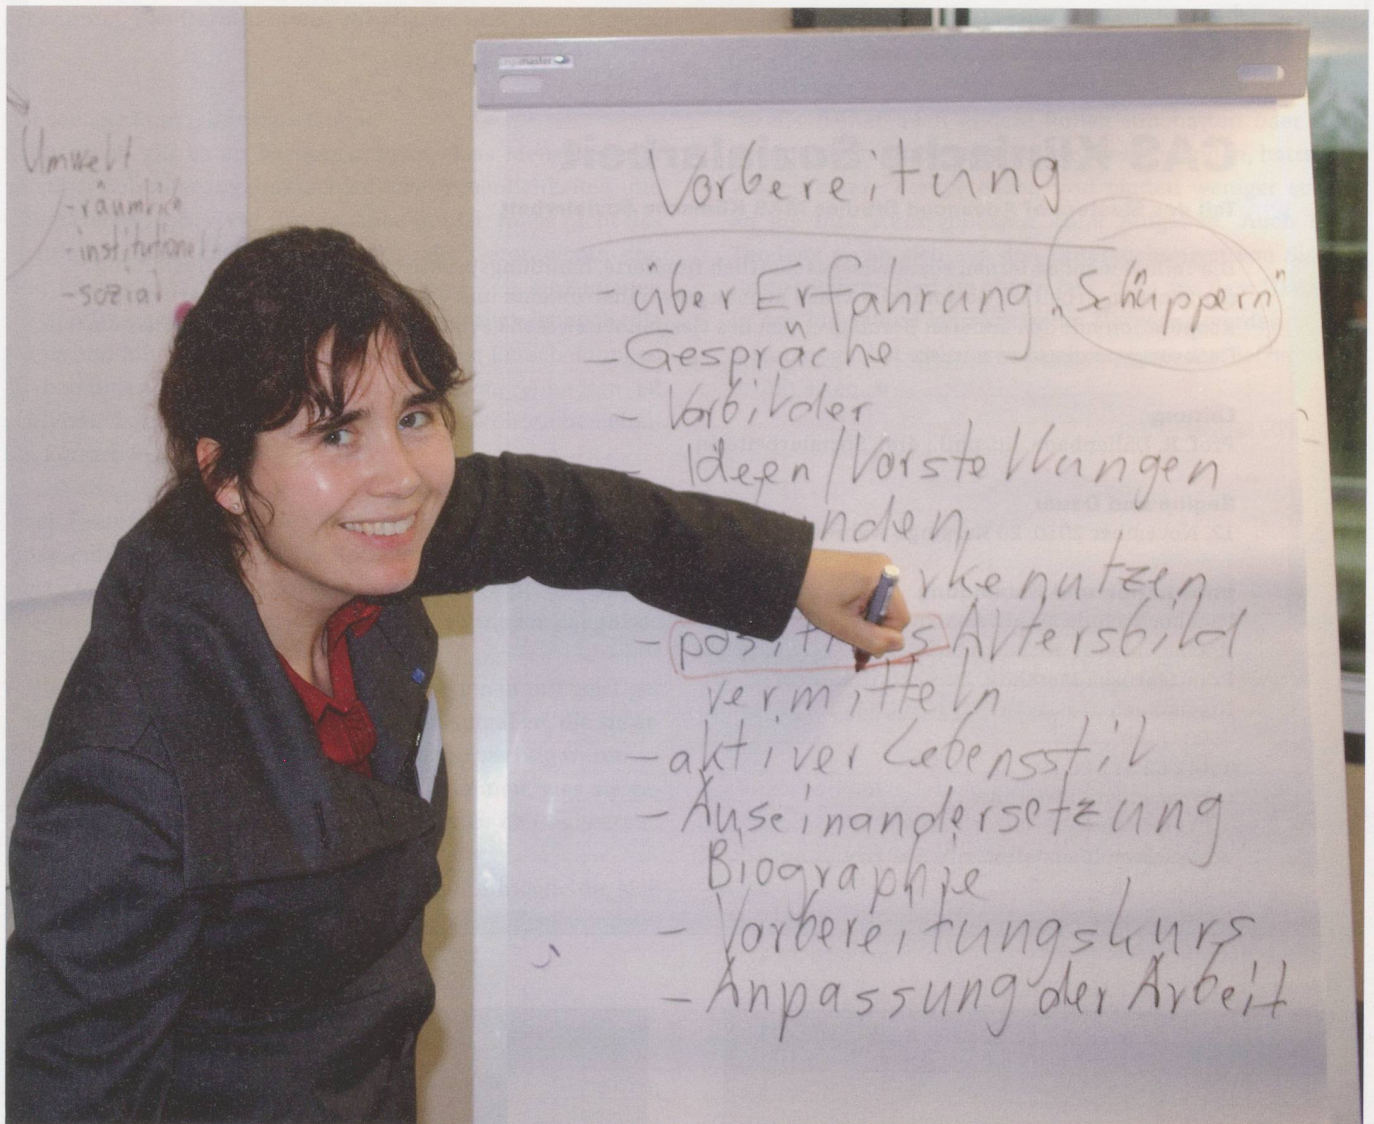 Umwelt
- räumlich
- institutionel
- sozial
master
Vorbereitung
- über Erfahrung „Schnuppern"
- Gespräche
- Vorbilder
- Ideen/Vorstellungen
nden
rke nutzen
- positives Altersbild
vermitteln
- aktiver Lebensstil
- Auseinandersetzung
Biographie
- Vorbereitungskurs
- Anpassung der Arbeit